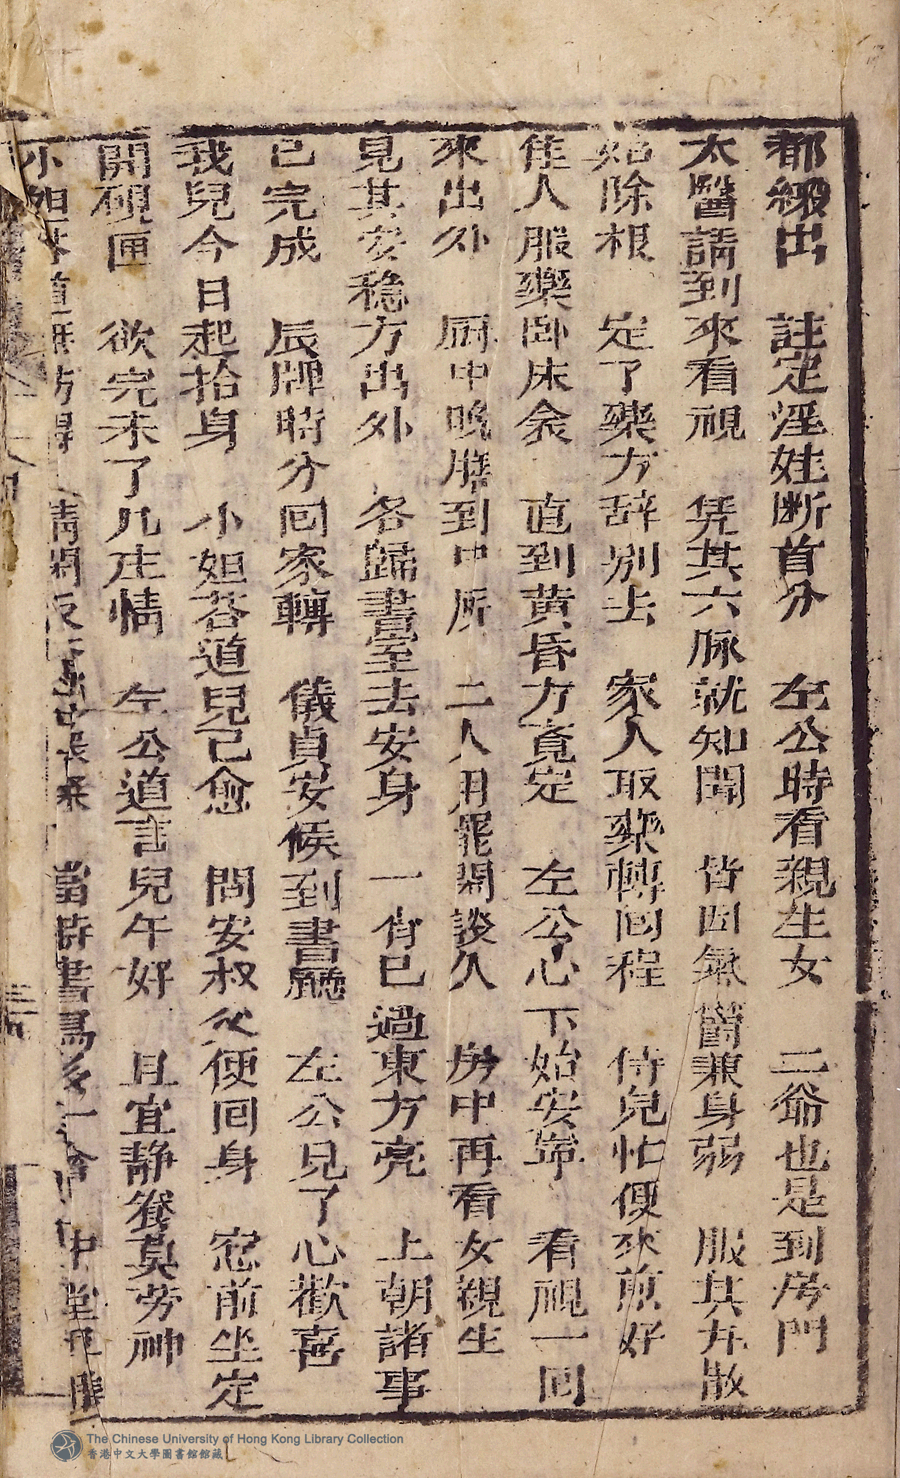 都緞出　註定淫娃断首分　左公時看親生女　二爺也是到房門
太醫請到來看視　凭其六脉就知聞　皆因氣欝兼身弱　服其丸散
始除根　定了藥方辞别去　家人取藥轉回程　侍兒忙便來煎好
隹人服藥卧床衾　直到黄昏方覔定　左公心下始安寧　看視一回
來出外　厨中晚膳到中所　二人用罷閑談久　房中再看女親生
見其安稳方出外　各歸書室去安身　一宵已過東方亮　上朝諸事
已完成　辰牌時分回家轉　儀貞安候到書廳　左公見了心歡喜
我兒今日起抬身　小姐荅道兒已愈　問安叔父便回身　窓前坐定
開硯匣　欲完未了几庄情　左公道言兒午好　且宜静養莫劳神
小姐荅道無妨得　當時書寫多一會　中堂
The Chinese University of Hong Kong Library Collection
香港中文大學圖書館館藏